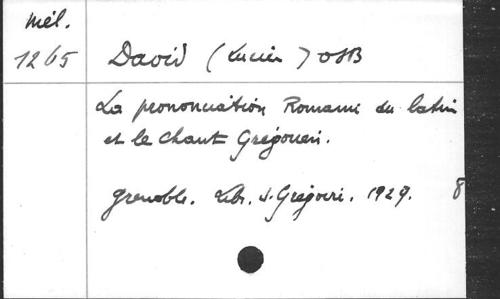 Mél.
1265
David (Lucien) OSB
La prononciation Romaine du latin
et le Chant Grégorien.
Grenoble. Libr. S. Grégoire. 1929. 8